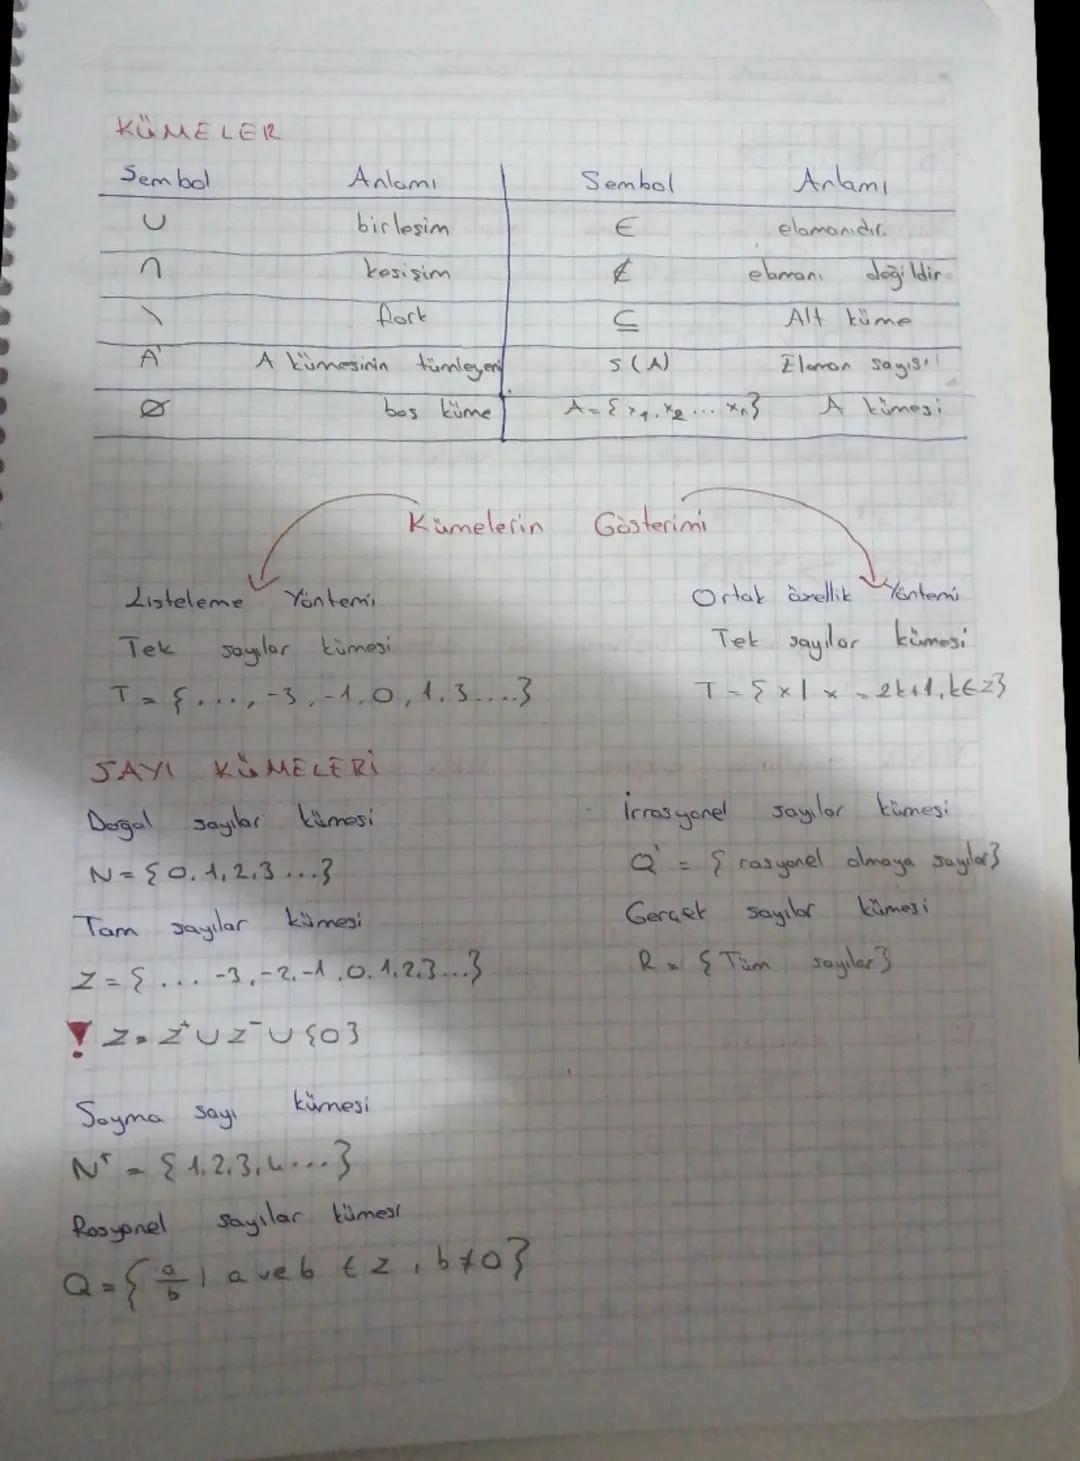 KÜMELER
Sembol Anlamı Sembol Anlamı
∪ birleşim ∈ elamanıdır.
∩ kesişim ∉ elamanı değildir
\ fark ⊆ Alt küme
A' A kümesinin tümleyeni s(A) Elaman sayısı
∅ boş küme A={x₁,x₂...xₙ} A kümesi
Kümelerin Gösterimi
Listeleme Yöntemi
Tek sayılar kümesi
T={...,-3,-1,0,1.3....}
Ortak özellik Yöntemi
Tek sayılar kümesi
T={x|x=2k+1,k∈Z}
SAYI KÜMELERİ
Dogal sayılar kümesi
N={0,1,2,3...}
Tam sayılar kümesi
Z={...-3,-2,-1,0.1.2.3...}
! Z=Z⁺∪Z⁻∪{0}
Sayma sayı kümesi
N⁺={1.2.3.4...}
Rasyonel sayılar kümesi
Q={a/b | a ve b ∈ Z, b≠0}
İrrasyonel sayılar kümesi
Q'={rasyonel olmaya sayılar}
Gerçek sayılar kümesi
R={Tüm sayılar}